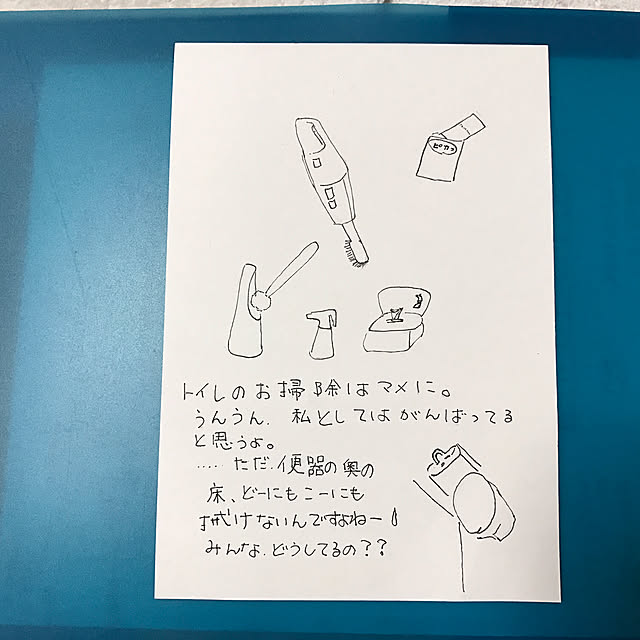 ピカッ
トイレのお掃除はマメに。
うんうん、私としてはがんばってる
と思うよ。
‥‥ ただ、便器の奥の
床、どーにもこーにも
拭けないんですよねー
みんな、どうしてるの??